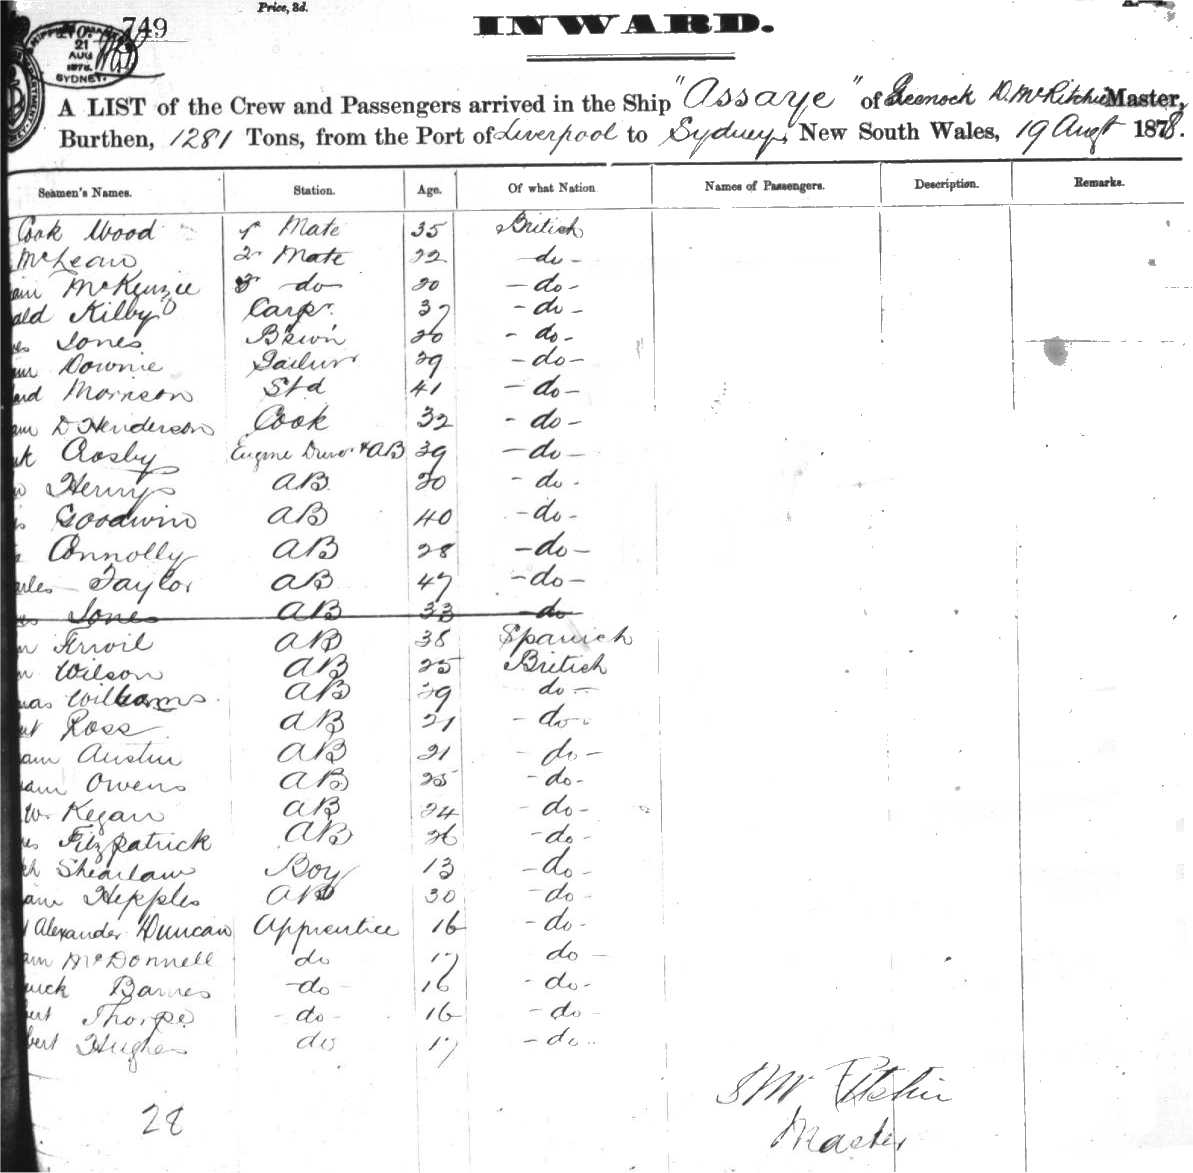 Price, 3d.
749
21
AUG
1878
SYDNEY
INWARD.
A LIST of the Crew and Passengers arrived in the Ship "Assaye" of Greenock D. McRitchie Master,
Burthen, 1281 Tons, from the Port of Liverpool to Sydney, New South Wales, 19 Augt 1878.
Seamen's Names. Station. Age. Of what Nation Names of Passengers. Description. Remarks.
Cook Wood 1 Mate 35 British
McLean 2 Mate 22 do
McKenzie 3 do 20 do
ald Kilby Carpr 37 do
Jones 20 do
Downie Sailmr 29 do
ard Morrison Std 41 do
am D Henderson Cook 32 do
Crosby Engine Driver & AB 39 do
Henry AB 20 do
Goodwin AB 40 do
Connolly AB 28 do
arles Taylor AB 47 do
Jones AB 33 do
AB 38 Spanish
n Wilson AB 25 British
mas Williams AB 29 do
Ross AB 21 do
am Austin AB 21 do
am Owens AB 25 do
W. Kegan AB 24 do
es Fitzpatrick AB 26 do
Shearlaw Boy 13 do
am Hepples AB 30 do
Alexander Duncan Apprentice 16 do
am McDonnell do 17 do
Barnes do 16 do
ert Thorpe do 16 do
bert Hughes do 17 do
28
Master